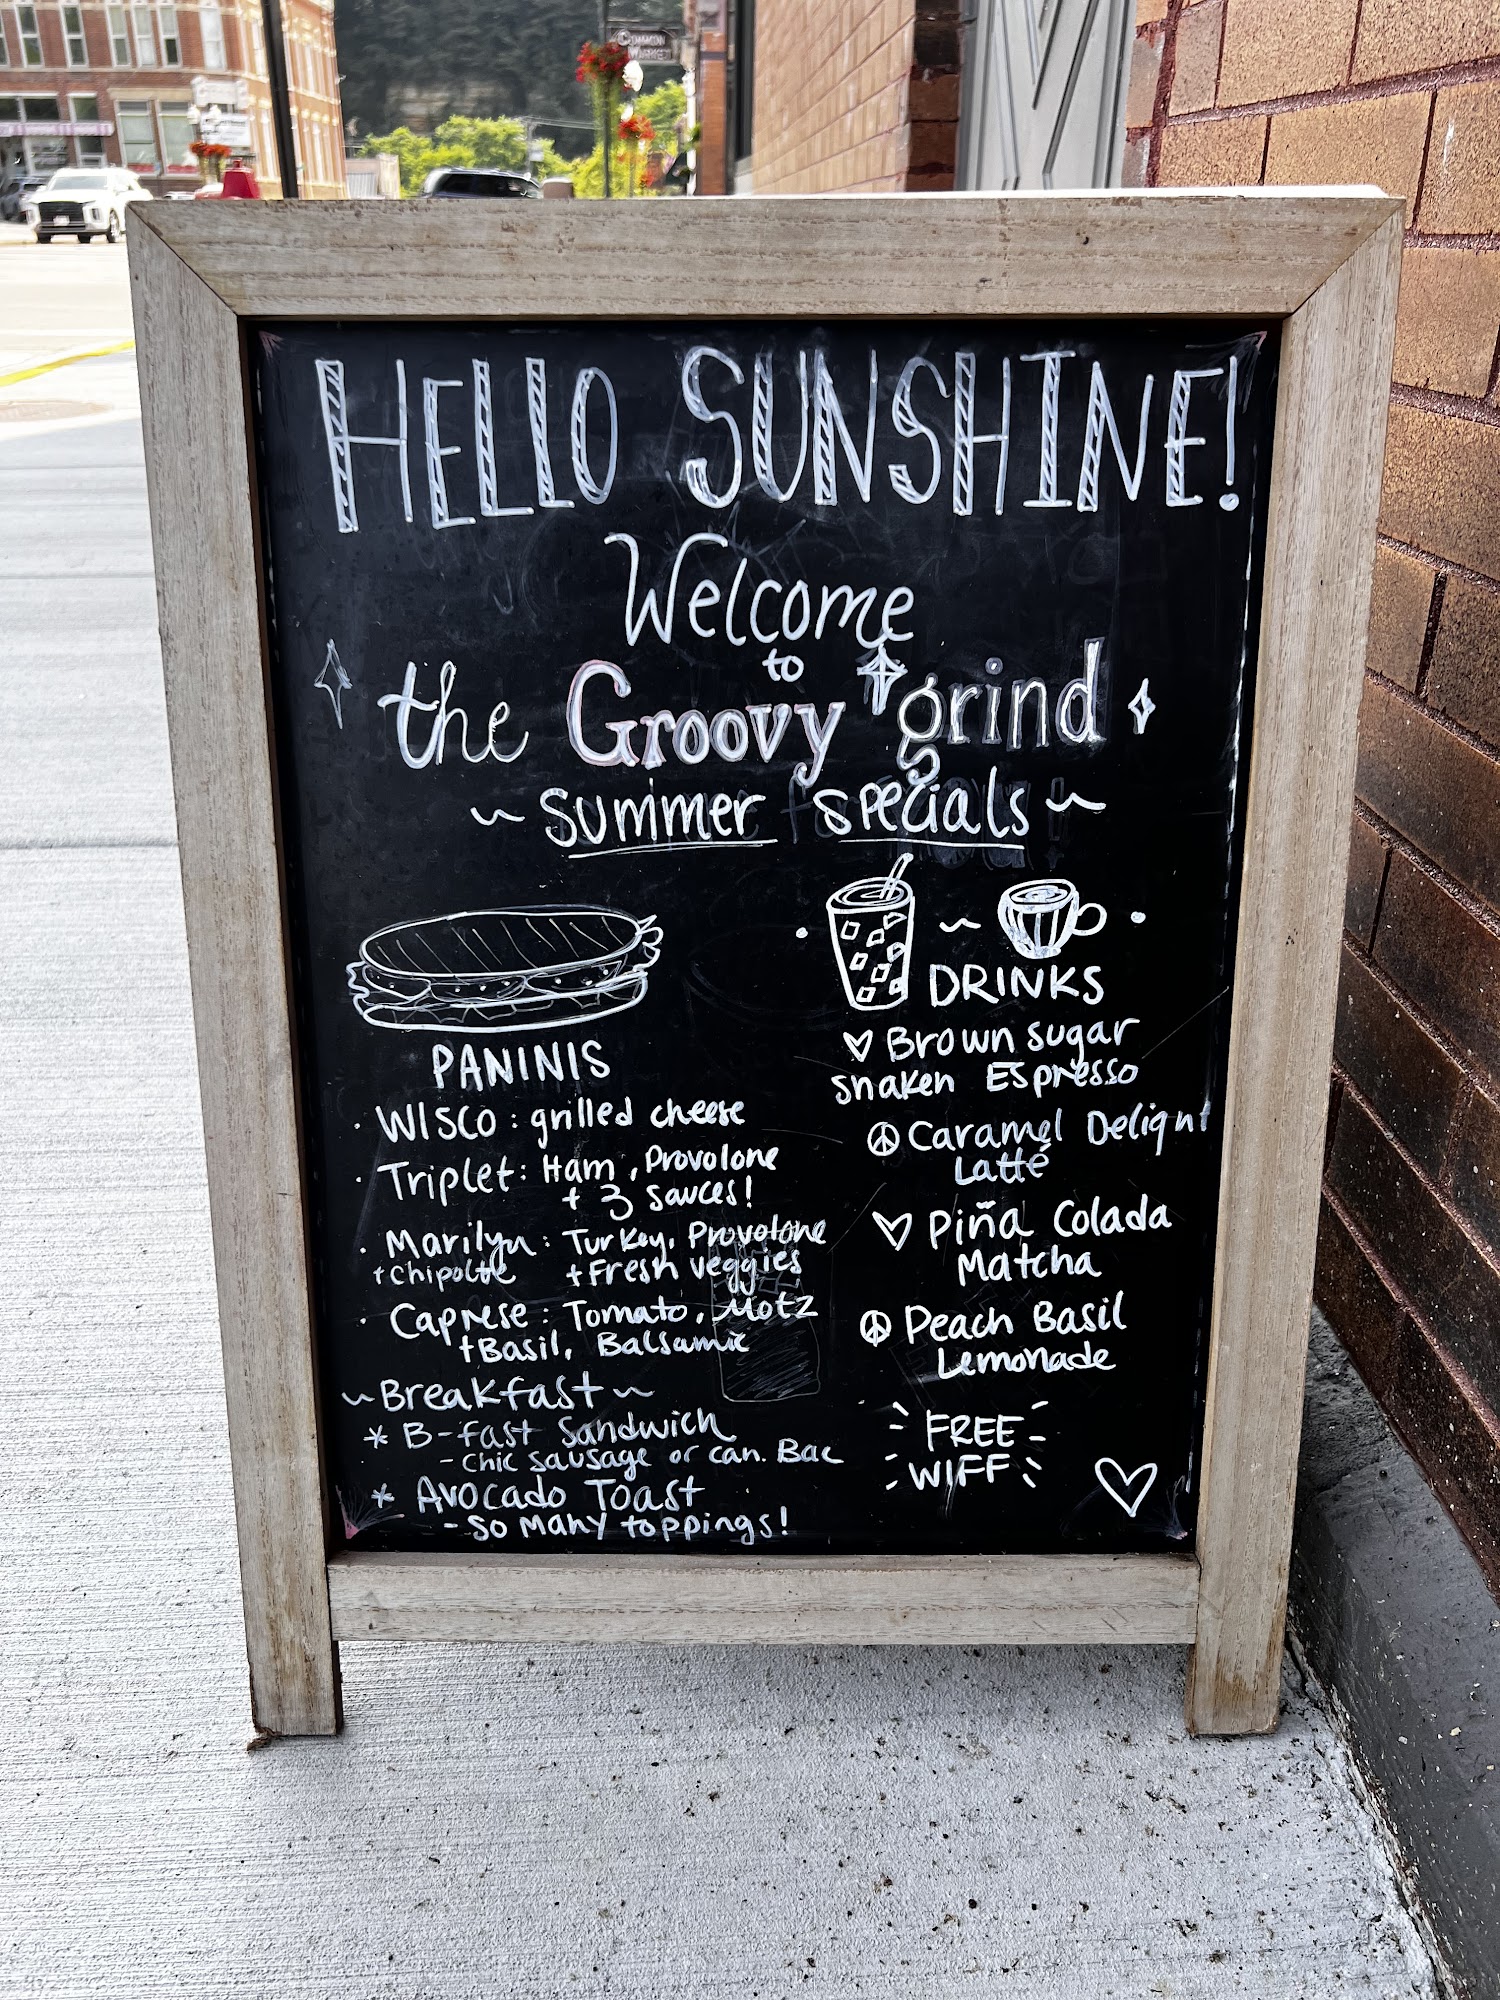 COMMON
MARKET
HELLO SUNSHINE!
Welcome
to
the Groovy grind
~ summer specials ~
PANINIS
· WISCO : grilled cheese
· Triplet : Ham, Provolone
+ 3 sauces!
· Marilyn : Turkey, Provolone
+Chipotle +Fresh veggies
· Caprese : Tomato, Motz
+Basil, Balsamic
~Breakfast~
* B-fast Sandwich
- chic sausage or can. Bac
* Avocado Toast
- so many toppings!
DRINKS
♡ Brown sugar
shaken Espresso
☮ Caramel Delight
Latté
♡ Piña Colada
Matcha
☮ Peach Basil
Lemonade
FREE
WIFF